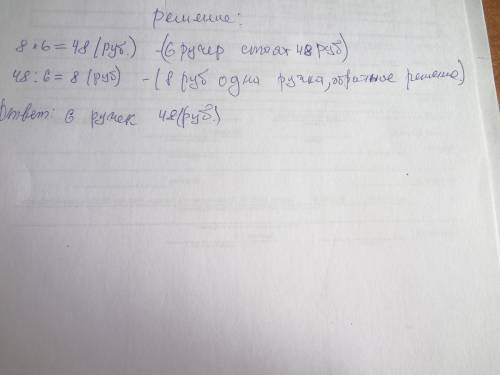 Решение:
8 • 6 = 48 (руб.) - (6 ручер стоят 48 руб)
48 : 6 = 8 (руб) - (8 руб одна ручка, обратное решение)
Ответ: 6 ручек 48 (руб.)